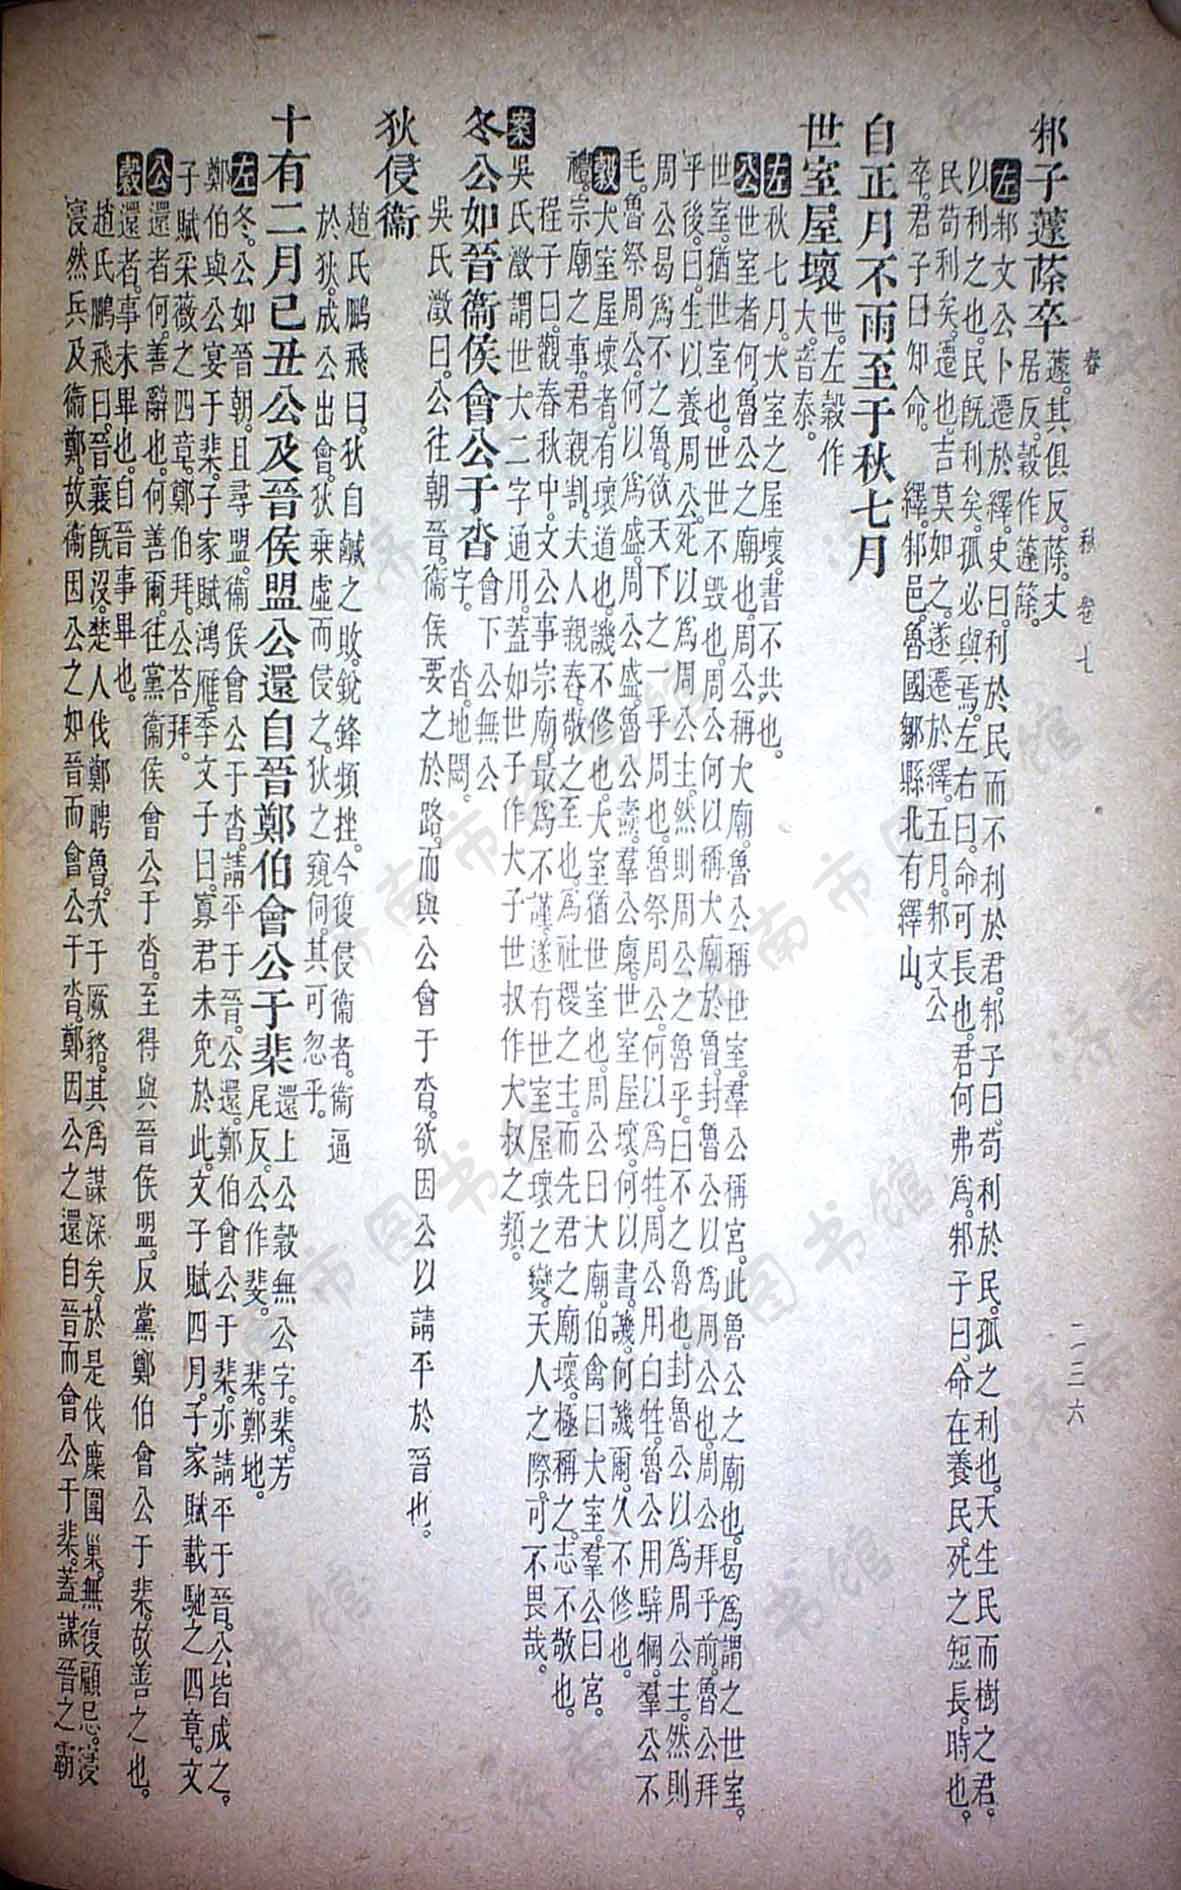 春秋　卷七　二三六
邾子蘧蒢卒　蘧其俱反。蒢丈
居反。穀作籧篨。
左邾文公卜遷於繹。史曰。利於民而不利於君。邾子曰。苟利於民。孤之利也。天生民而樹之君。
以利之也。民既利矣。孤必與焉。左右曰。命可長也。君何弗爲。邾子曰。命在養民。死之短長。時也。
民苟利矣。遷也。吉莫如之。遂遷於繹。五月。邾文公
卒。君子曰知命。　繹。邾邑。魯國鄒縣北有繹山。
自正月不雨至于秋七月
世室屋壞　世。左穀作
大。音泰。
左秋七月。大室之屋壞。書不共也。
公世室者何。魯公之廟也。周公稱大廟。魯公稱世室。羣公稱宮。此魯公之廟也。曷爲謂之世室。
世室。猶世室也。世世不毀也。周公何以稱大廟於魯。封魯公以爲周公也。周公拜乎前。魯公拜
乎後。曰。生以養周公。死以爲周公主。然則周公之魯乎。曰不之魯也。封魯公以爲周公主。然則
周公曷爲不之魯。欲天下之一乎周也。魯祭周公。何以爲牲。周公用白牲。魯公用騂犅。羣公不
毛。魯祭周公。何以爲盛。周公盛。魯公燾。羣公廩。世室屋壞。何以書。譏。何譏爾。久不修也。
穀大室屋壞者。有壞道也。譏不修也。大室猶世室也。周公曰大廟。伯禽曰大室。羣公曰宮。
禮。宗廟之事。君親割。夫人親舂。敬之至也。爲社稷之主。而先君之廟壞。極稱之。志不敬也。
程子曰。觀春秋中。文公事宗廟。最爲不謹。遂有世室屋壞之變。天人之際。可不畏哉。
案吳氏澂謂世大二字通用。蓋如世子作大子世叔作大叔之類。
冬公如晉衞侯會公于沓　會下公無公
字。　沓。地闕。
吳氏澂曰。公往朝晉。衞侯要之於路。而與公會于沓。欲因公以請平於晉也。
狄侵衞
趙氏鵬飛曰。狄自鹹之敗。銳鋒頻挫。今復侵衞者。衞逼
於狄。成公出會。狄乘虛而侵之。狄之窺伺。其可忽乎。
十有二月己丑公及晉侯盟公還自晉鄭伯會公于棐　還上公穀無公字。棐。芳
尾反。公作斐。　棐。鄭地。
左冬。公如晉朝。且尋盟。衞侯會公于沓。請平于晉。公還。鄭伯會公于棐。亦請平于晉。公皆成之。
鄭伯與公宴于棐。子家賦鴻雁。季文子曰。寡君未免於此。文子賦四月。子家賦載馳之四章。文
子賦采薇之四章。鄭伯拜。公荅拜。
公還者何。善辭也。何善爾。往黨衞侯會公于沓。至得與晉侯盟。反黨鄭伯會公于棐。故善之也。
穀還者。事未畢也。自晉事畢也。
趙氏鵬飛曰。晉襄既沒。楚人伐鄭聘魯。次于厥貉。其爲謀深矣。於是伐麇圍巢。無復顧忌。浸
寖然兵及衞鄭。故衞因公之如晉而會公于沓。鄭因公之還自晉而會公于棐。蓋謀晉之霸